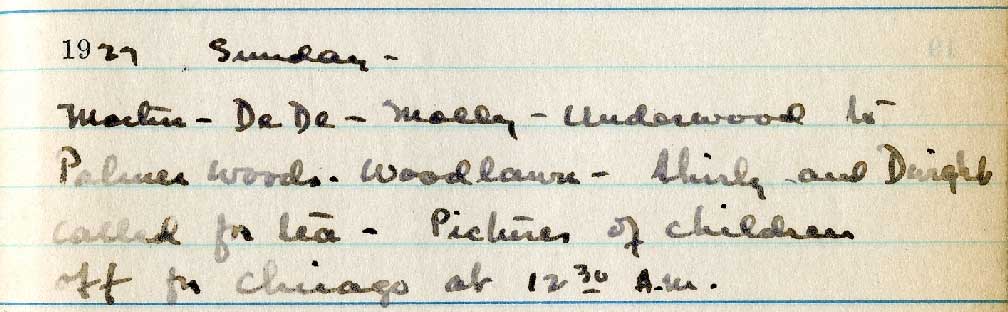 1927 Sunday -
Martin - De De - Molly - Underwood to
Palmer Woods. Woodlawn - Shirly and Dwight
called for tea - Pictures of children
off for Chicago at 12 30 A.M.